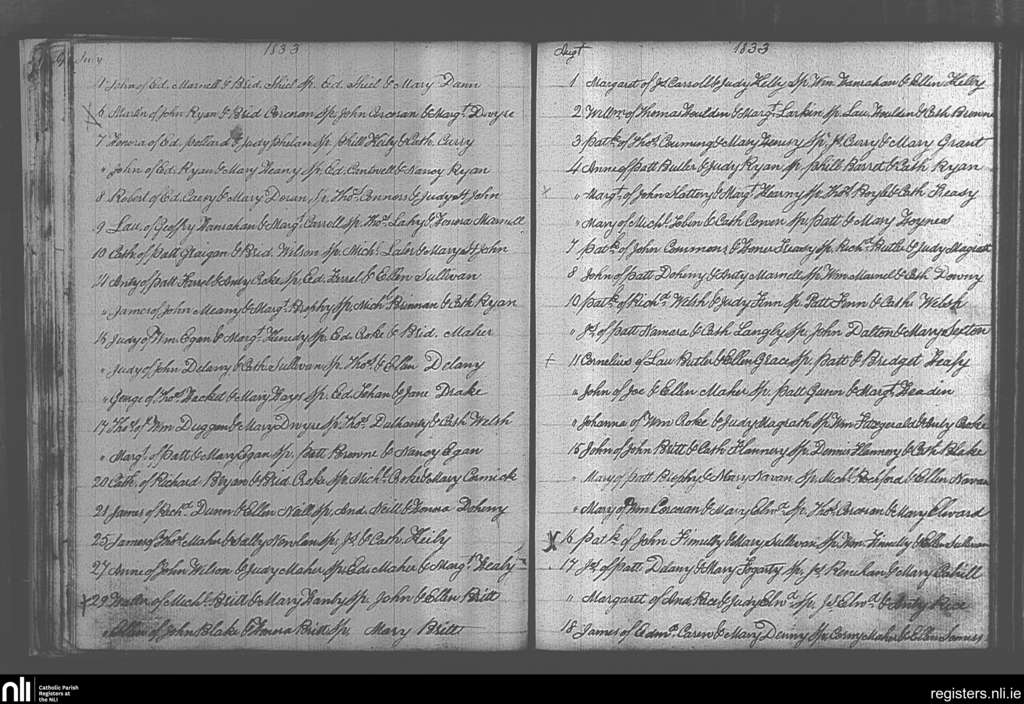 1833
July
1 John of Ed. Marnell & Brid. Shiel Sp. Ed. Shiel & Mary Dann
6 Martin of John Ryan & Brid Corcoran Sp. John Corcoran & Margt. Dwyre
7 Honora of Ed. Pollard & Judy Phelan Sp. Phill Heily & Cath. Curry
" John of Ed. Ryan & Mary Heany Sp. Ed. Cantwell & Nancy Ryan
8 Robert of Ed. Casey & Mary Doran Sp. Thos. Connors & Judy St John
9 Lau. of Geoffry Hanrahan & Margt. Carroll Sp. Thos. Lahy & Honora Marnell
10 Cath. of Patt Glaigon & Brid. Wilson Sp. Michl. Lalr & Mary St John
11 Anty of Patt Farrel & Andy Coke Sp. Ed. Farrel & Ellen Sullivan
" James of John Meany & Margt. Brophy Sp. Michl. Brennan & Cath Ryan
16 Judy of Wm. Egan & Margt. Kennedy Sp. Ed. Croke & Brid. Maher
" Judy of John Delany & Cath Sullivan Sp. Thos. & Ellen Delany
" George of Thos. Hacket & Mary Hayes Sp. Ed. Tehan & Jane Drake
17 Thos. of Wm. Duggan & Mary Dwyre Sp. Thos. Dulhanty & Cath Welsh
" Margt. of Patt & Mary Egan Sp. Patt Browne & Nancy Egan
20 Cath. of Richard Bryan & Brid Croke Sp. Michl. Croke & Mary Cormick
21 James of Richd. Dunn & Ellen Neill Sp. And. Neill & Honora Doheny
25 James of Thos. Maher & Sally Nowlan Sp. Js. & Cath. Heily
27 Anne of John Wilson & Judy Maher Sp. Ed. Maher & Margt. Healy
29 Walter of Michl. Britt & Mary Hanly Sp. John & Ellen Britt
" Ellen of John Blake & Honra Britt Sp. Mary Britt
Augt
1833
1 Margaret of Js. Carroll & Judy Kelly Sp. Wm. Hanrahan & Ellen Kelly
2 Willm. of Thomas Houlden & Margt. Larkin Sp. Lau. Houlden & Cath Browne
3 Patk. of Thos. Cuming & Mary Henesy Sp. P. Curry & Mary Grant
4 Anne of Patt Butler & Judy Ryan Sp. Phill Barret & Cath Ryan
" Margt. of John Slattery & Margt. Hearny Sp. Thos. Boyle & Cath Feasy
" Mary of Michl. Tobin & Cath Comen Sp. Patt & Mary Hoynes
7 Patk. of John Commons & Honor Feasy Sp. Richd. Butler & Judy Magrat
8 John of Patt Doheny & Anty Marnell Sp. Wm Marnel & Cath Downy
10 Patk. of Richd. Welsh & Judy Finn Sp. Patt Finn & Cath Welsh
" Js. of Patt Namara & Cath Langly Sp. John Dalton & Mary Sexton
11 Cornelius of Lau Butler & Ellen Grace Sp. Patt & Bridget Feasy
" John of Joe & Ellen Maher Sp. Patt Quinn & Margt. Headin
" Johanna of Wm Croke & Judy Magrath Sp. Wm Fitzgerald & Croke
15 John of John Britt & Cath Flannery Sp. Dennis Flannery & Cath Blake
" Mary of Patt Brophy & Mary Navan Sp. Michl. Rochford & Ellen Navan
" Mary of Wm Corcoran & Mary Elwd. Sp. Thos. Corcoran & Mary Elward
16 Patk. of John Finnelly & Mary Sullivan Sp. Wm. Finnelly & Ellen Sullivan
17 Js. of Patt Delany & Mary Fogarty Sp. Js. Renehan & Mary Cahill
" Margaret of And. Rice & Judy Elwd. Sp. Js. Elwd. & Anty Rice
18 James of Edmd. Carew & Mary Denny Sp. Corny Maher & Ellen
nli Catholic Parish
Registers at
the NLI
registers.nli.ie